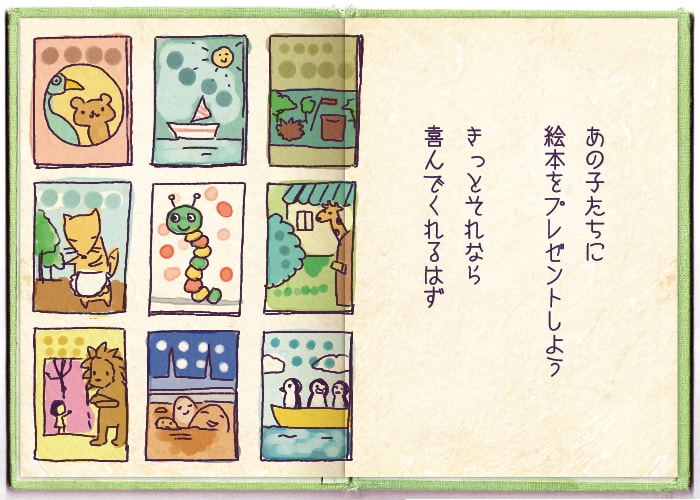 あの子たちに
絵本をプレゼントしよう
きっとそれなら
喜んでくれるはず